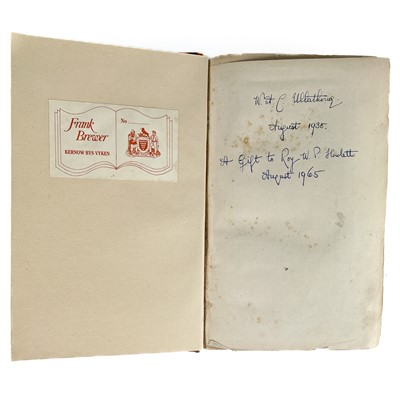 Frank
Brewer
No
KERNOW BYS VYKEN
W. H. C.
August 1930.
A Gift to Roy W. P.
August 1965